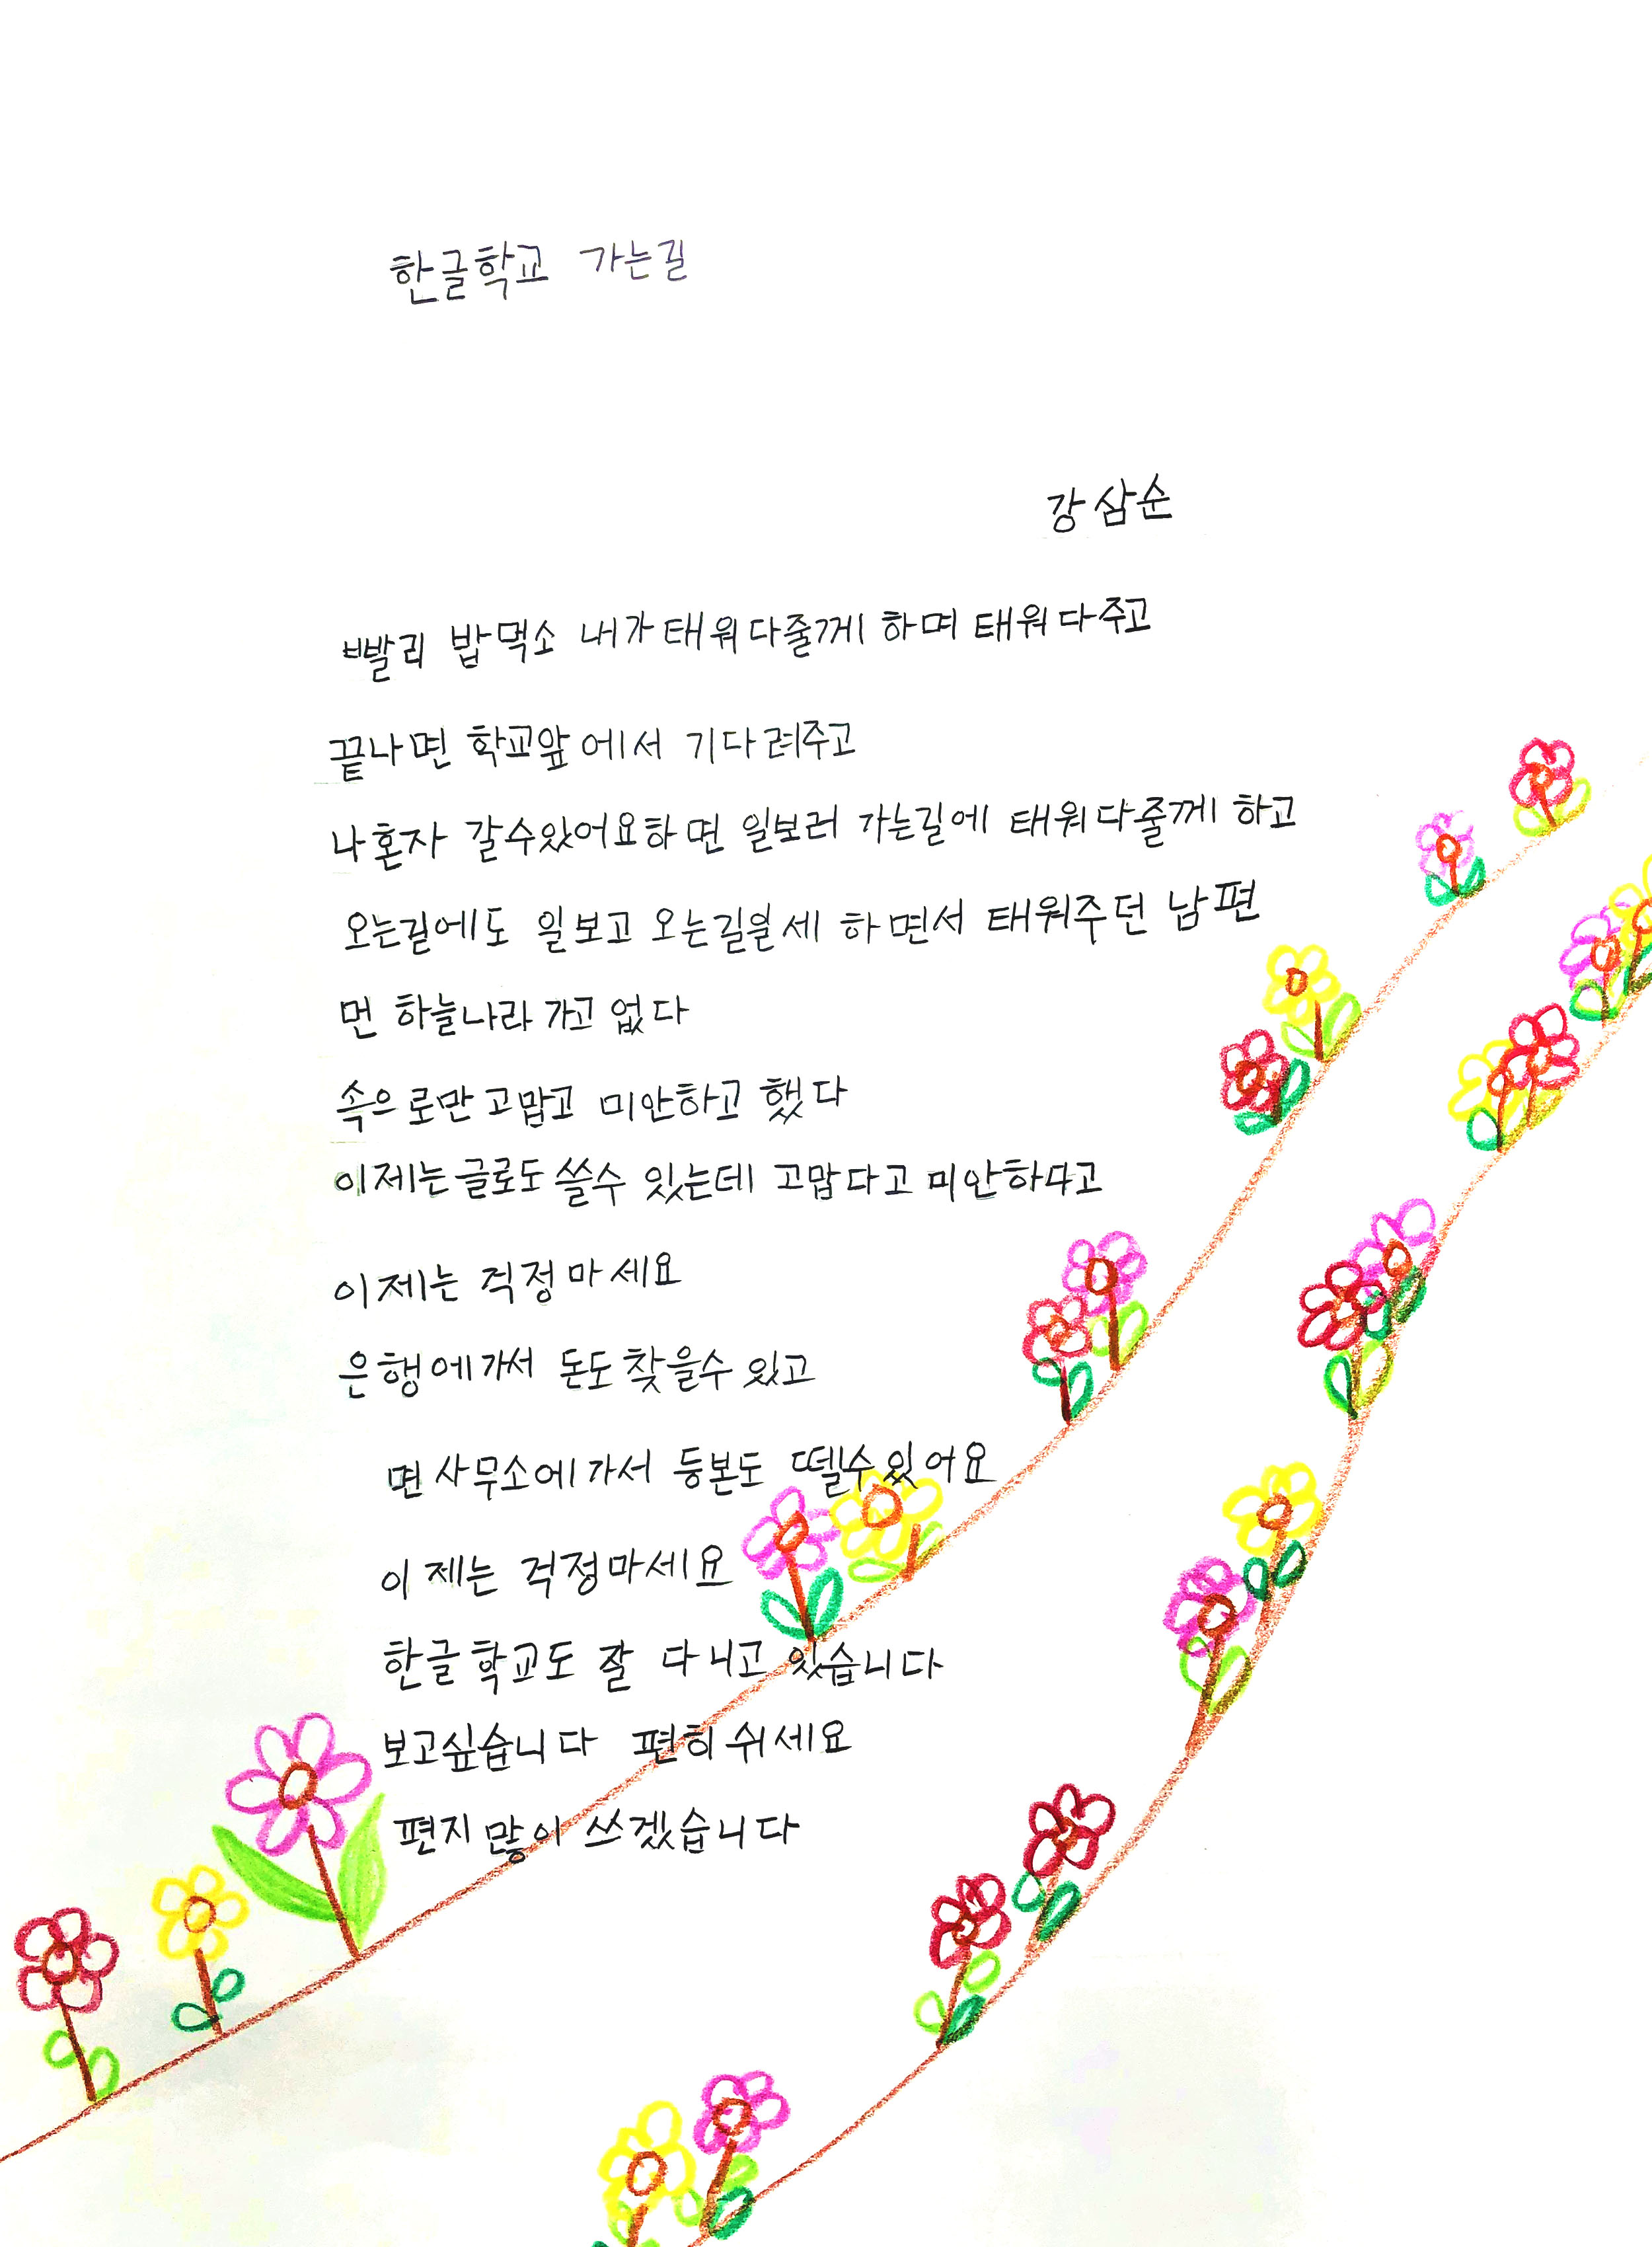 한글학교 가는길
강삼순
빨리 밥먹소 내가 태워다줄께 하며 태워다주고
끝나면 학교앞에서 기다려주고
나혼자 갈수있어요하면 일보러 가는길에 태워다줄께 하고
오는길에도 일보고 오는길일세 하면서 태워주던 남편
먼 하늘나라 가고 없다
속으로만 고맙고 미안하고 했다
이제는글로도 쓸수 있는데 고맙다고 미안하다고
이제는 걱정마세요
은행에가서 돈도 찾을수 있고
면사무소에가서 등본도 뗄수있어요
이제는 걱정마세요
한글학교도 잘 다니고 있습니다
보고싶습니다 편히쉬세요
편지 많이 쓰겠습니다